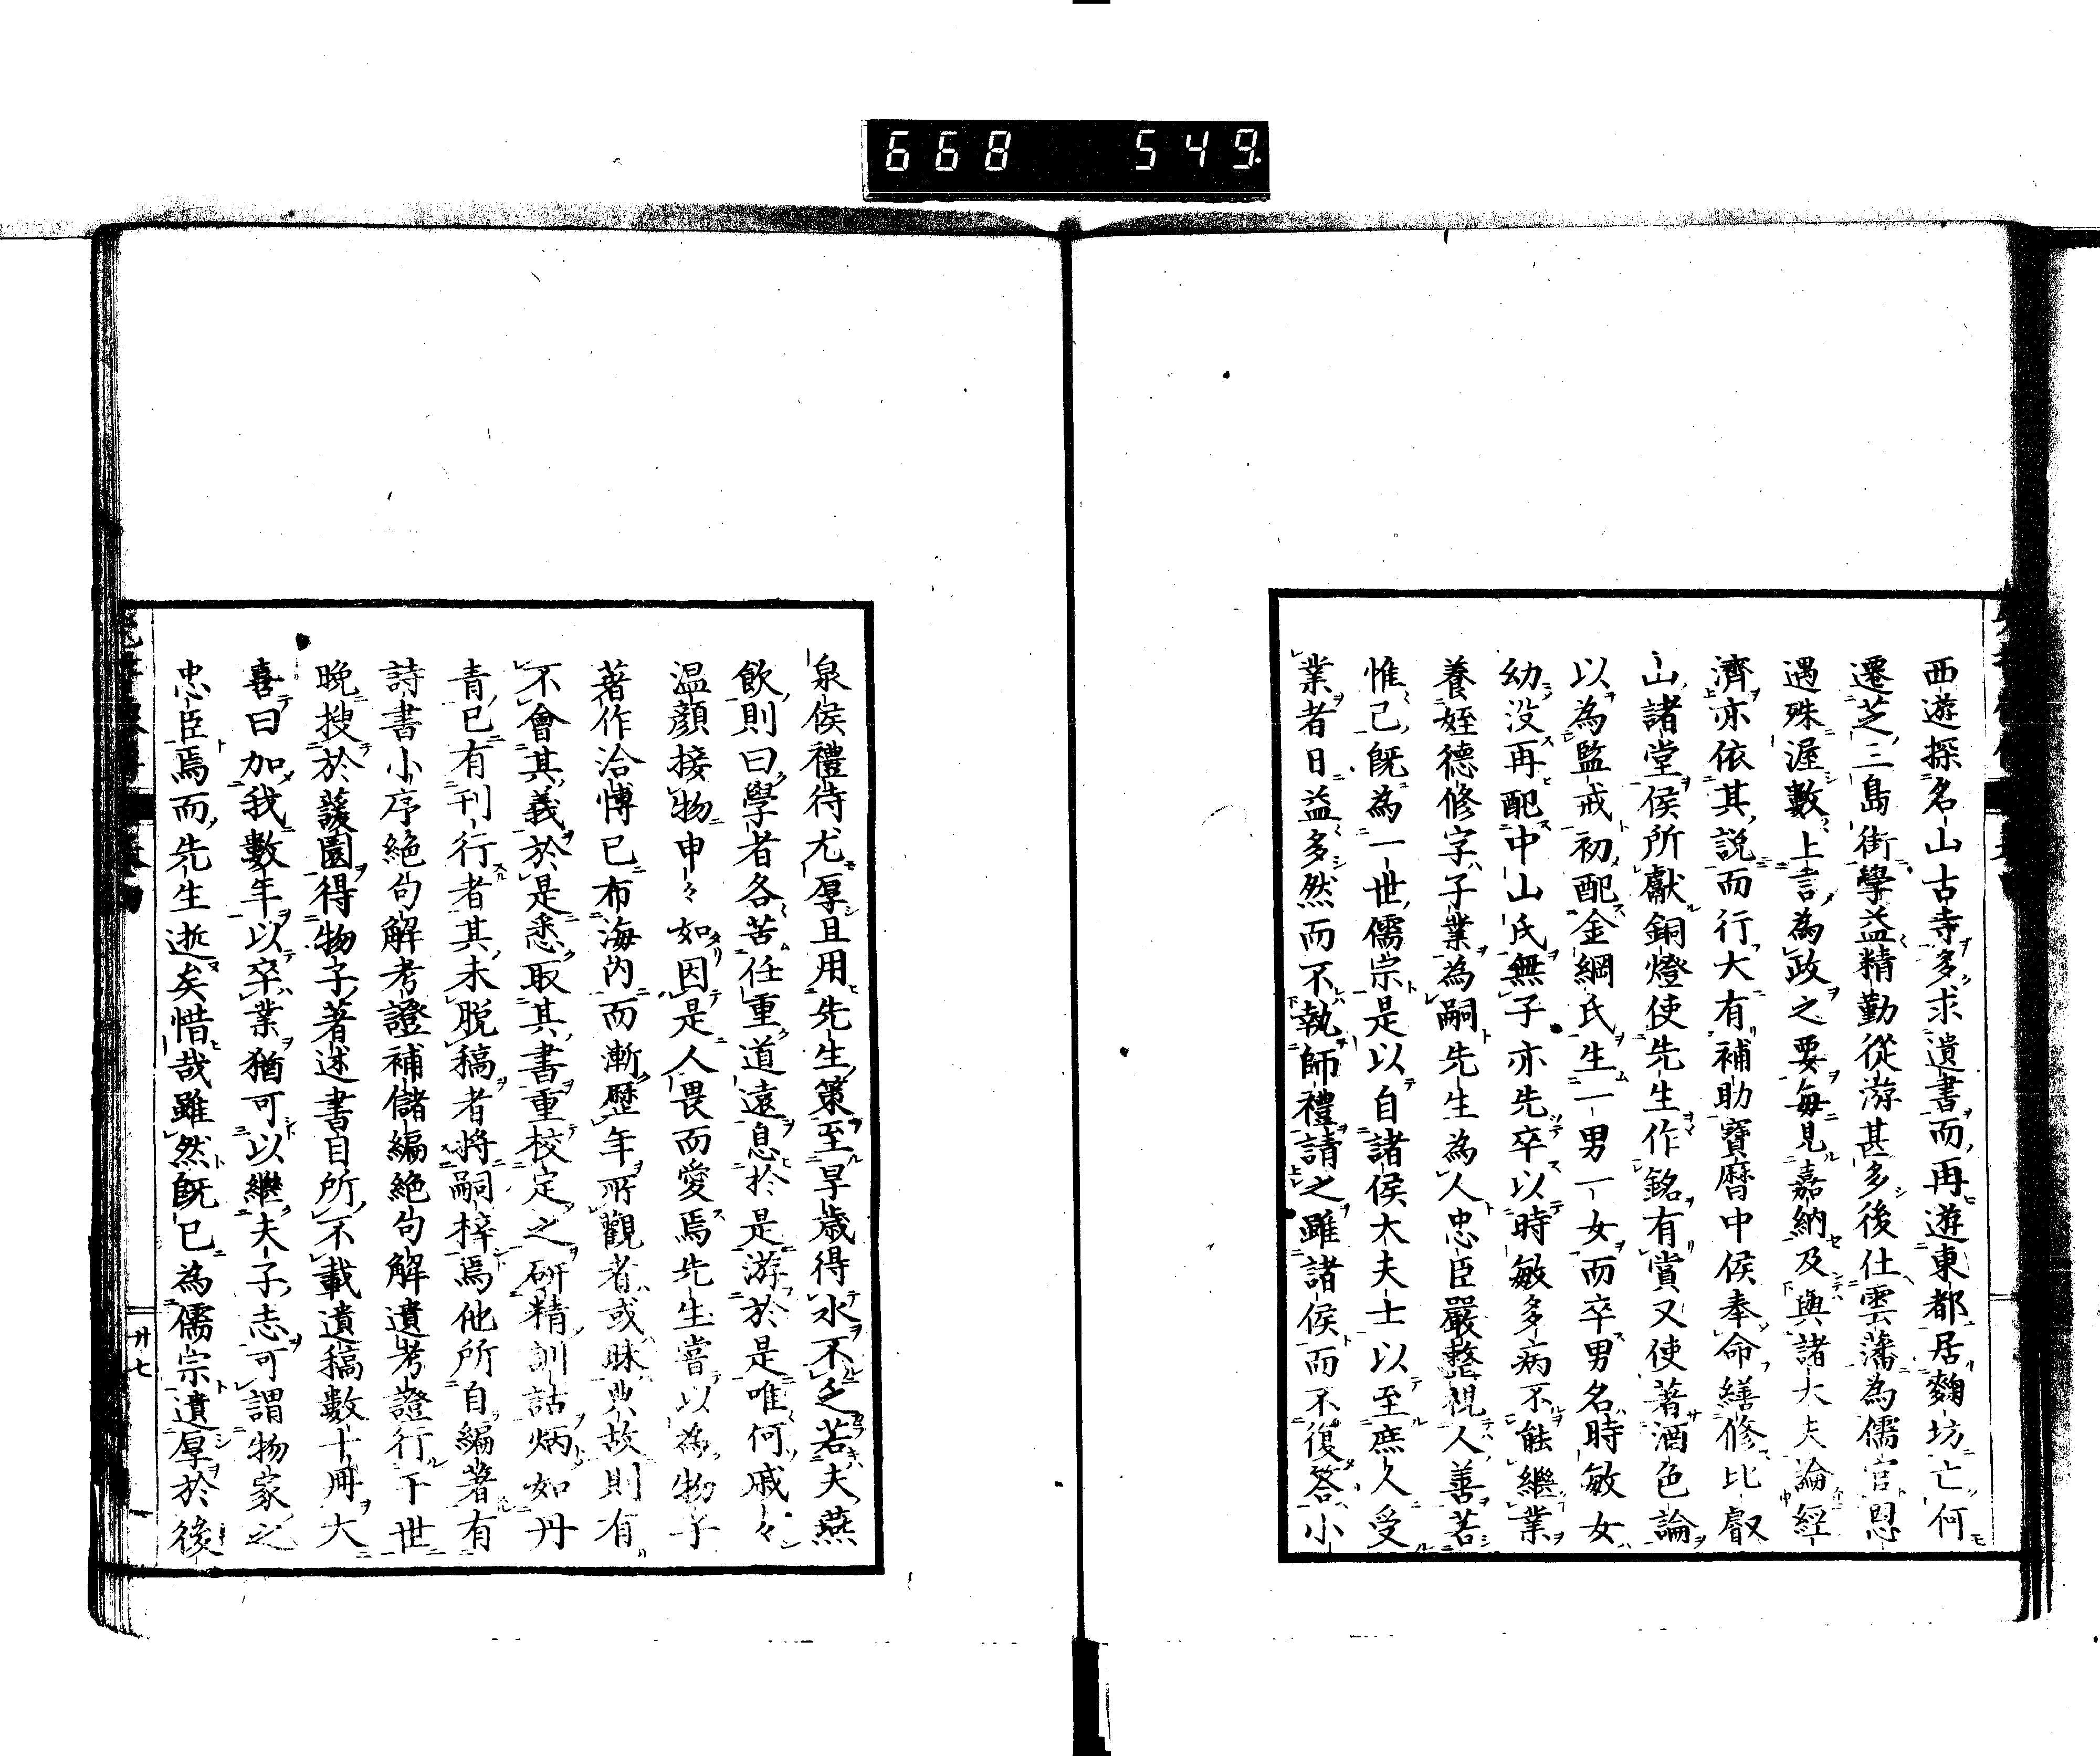 668 549.
西遊探名山古寺多求遺書而再遊東都居麴坊亡何
遷芝三島街學益精勤從游甚多後仕雲藩為儒官恩
遇殊渥數上言為政之要每見嘉納及與諸大夫論經
濟亦依其說而行大有補助寶曆中侯奉命繕修比叡
山諸堂侯所獻銅燈使先生作銘有賞又使著酒色論
以為監戒初配金綱氏生一男一女而卒男名時敏女
幼没再配中山氏無子亦先卒以時敏多病不能繼業
養姪德修字子業為嗣先生為人忠臣嚴整視人善若
惟己既為一世儒宗是以自諸侯大夫士以至庶人受
業者日益多然而不執師禮請之雖諸侯而不復答小
泉侯禮待尤厚且用先生策至旱歲得水不乏若夫燕
飲則曰學者各苦任重道遠息於是游於是唯何戚々
温顏接物申々如因是人畏而愛焉先生嘗以為物子
著作洽博已布海內而漸歷年所觀者或昧典故則有
不會其義於是悉取其書重校定之研精訓詁炳如丹
青已有刊行者其未脫稿者將嗣梓焉他所自編著有
詩書小序絕句解考證補儲編絕句解遺考證行于世
晚搜於蘐園得物子著述書目所不載遺稿數十冊大
喜曰加我數年以卒業猶可以繼夫子志可謂物家之
忠臣焉而先生逝矣惜哉雖然既已為儒宗遺厚於後
廿七